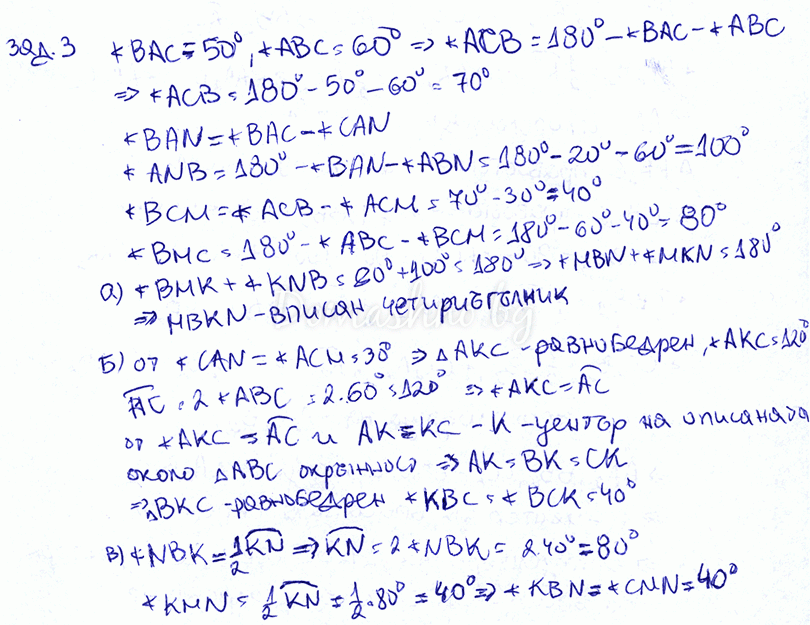 Зад.3 ∢BAC=50°, ∢ABC=60° => ∢ACB=180°-∢BAC-∢ABC
=> ∢ACB=180°-50°-60°=70°
∢BAN=∢BAC-∢CAN
∢ANB=180°-∢BAN-∢ABN=180°-20°-60°=100°
∢BCM=∢ACB-∢ACM=70°-30°=40°
∢BMC=180°-∢ABC-∢BCM=180°-60-40°=80°
а) ∢BMK+∢KNB=80°+100°=180° => ∢MBN+∢MKN=180°
=> MBKN-вписан четириъгълник
Б) от ∢CAN=∢ACM=30° => △AKC-равнобедрен, ∢AKC=120°
AC=2∢ABC=2.60°=120° => ∢AKC=AC
от ∢AKC=AC и AK=KC-K-център на описаната
около △ABC окръжност => AK=BK=CK
=> △BKC-равнобедрен ∢KBC=∢BCK=40°
в) ∢NBK=1/2KN => KN=2∢NBK=2.40°=80°
∢KMN=1/2KN=1/2.80°=40° => ∢KBN=∢CMN=40°
Domashno.bg